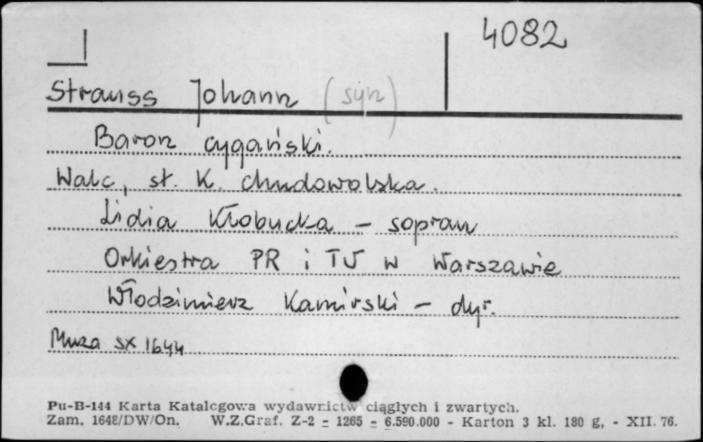 4082
Strauss Johann (syn)
Baron cygański.
Walc, sł. K. Chudowolska.
Lidia Kłobucka - sopran
Orkiestra PR i TV w Warszawie
Włodzimierz Kamirski - dyr.
Muza SX 1644
Pu-B-144 Karta Katalogowa wydawnictw ciągłych i zwartych.
Zam. 1648/DW/On. W.Z.Graf. Z-2 - 1265 - 6.590.000 - Karton 3 kl. 180 g, - XII. 76.